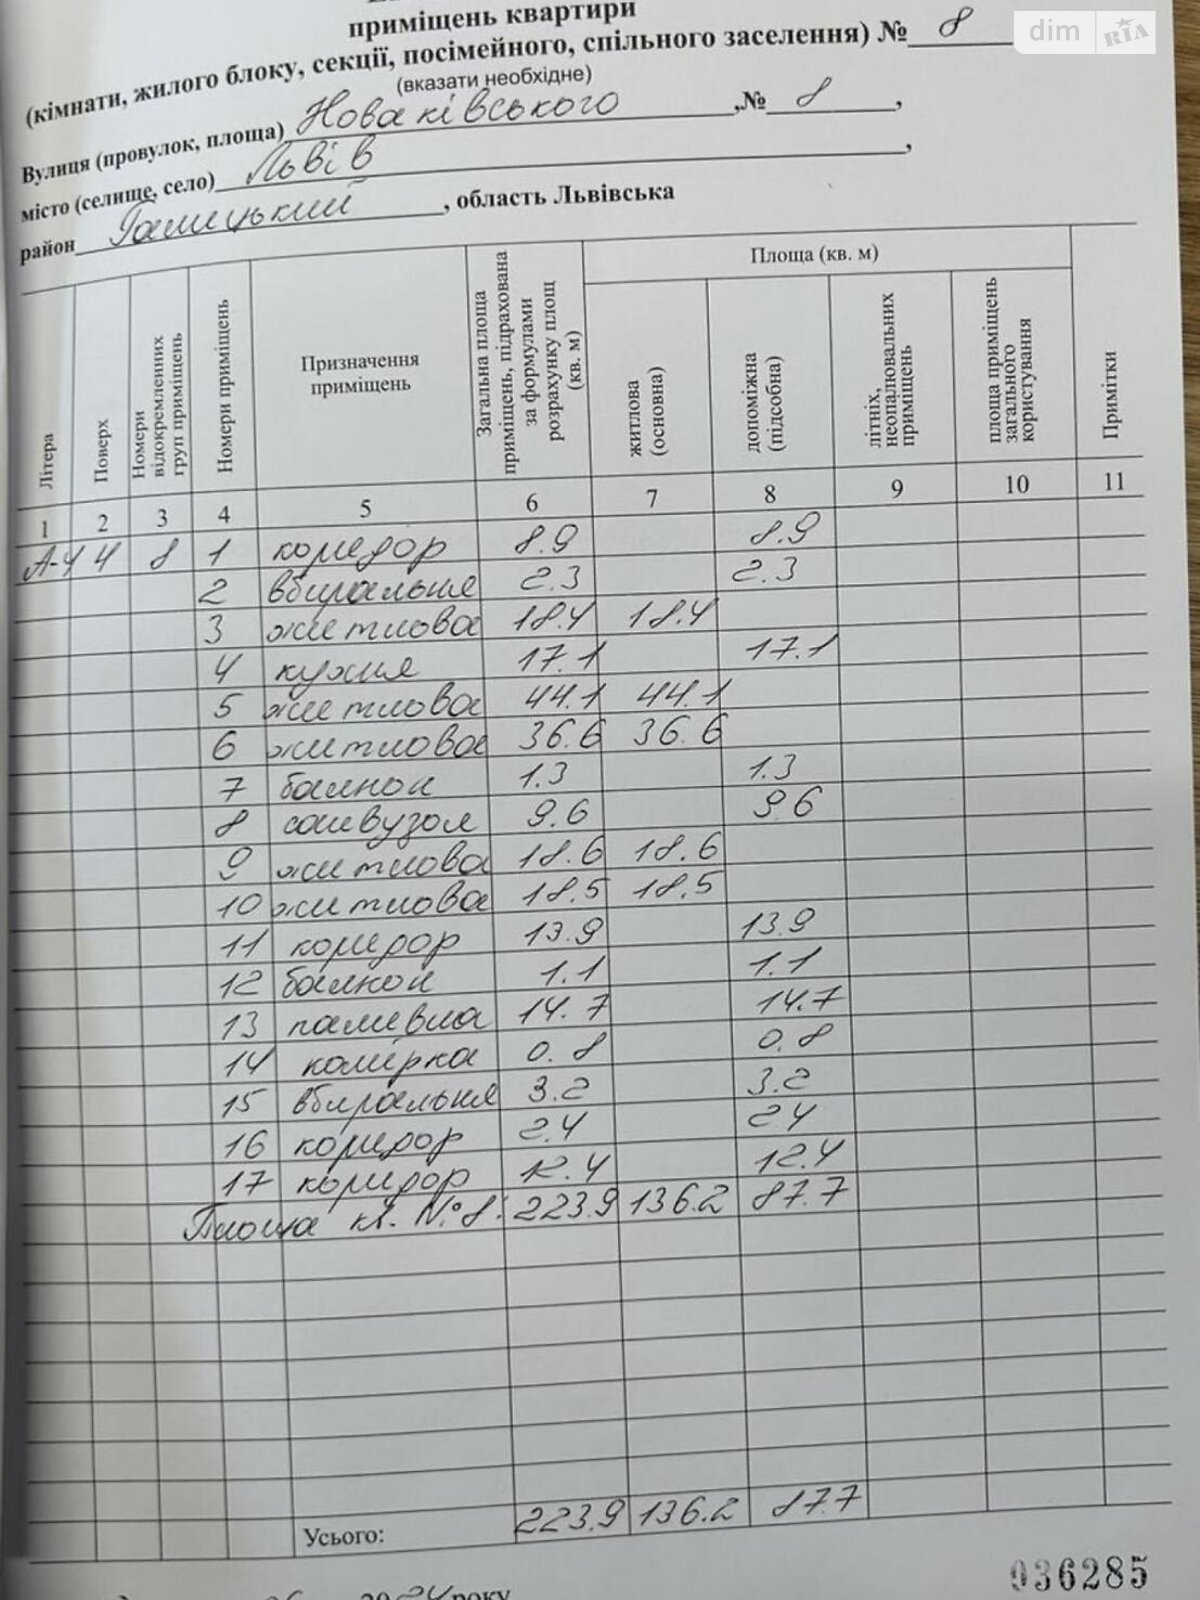 приміщень квартири
(кімнати, жилого блоку, секції, посімейного, спільного заселення) № 8
dim RIA
(вказати необхідне)
Вулиця (провулок, площа) Новаківського ,№ 8 ,
місто (селище, село) Львів ,
район Галицький , область Львівська
Літера Поверх Номери відокремленних груп приміщень Номери приміщень Призначення приміщень Загальна площа приміщень, підрахована за формулами розрахунку площ (кв. м) Площа (кв. м) житлова (основна) допоміжна (підсобна) літніх, неопалювальних приміщень площа приміщень загального користування Примітки
1 2 3 4 5 6 7 8 9 10 11
А-4 4 8 1 коридор 8.9 8.9
2 вбиральня 2.3 2.3
3 житлова 18.4 18.4
4 кухня 17.1 17.1
5 житлова 44.1 44.1
6 житлова 36.6 36.6
7 балкон 1.3 1.3
8 санвузол 9.6 9.6
9 житлова 18.6 18.6
10 житлова 18.5 18.5
11 коридор 13.9 13.9
12 балкон 1.1 1.1
13 14.7 14.7
14 комірка 0.8 0.8
15 вбиральня 3.2 3.2
16 коридор 2.4 2.4
17 коридор 12.4 12.4
Площа кв. №8: 223.9 136.2 87.7
Усього: 223.9 136.2 87.7
036285
2024 року